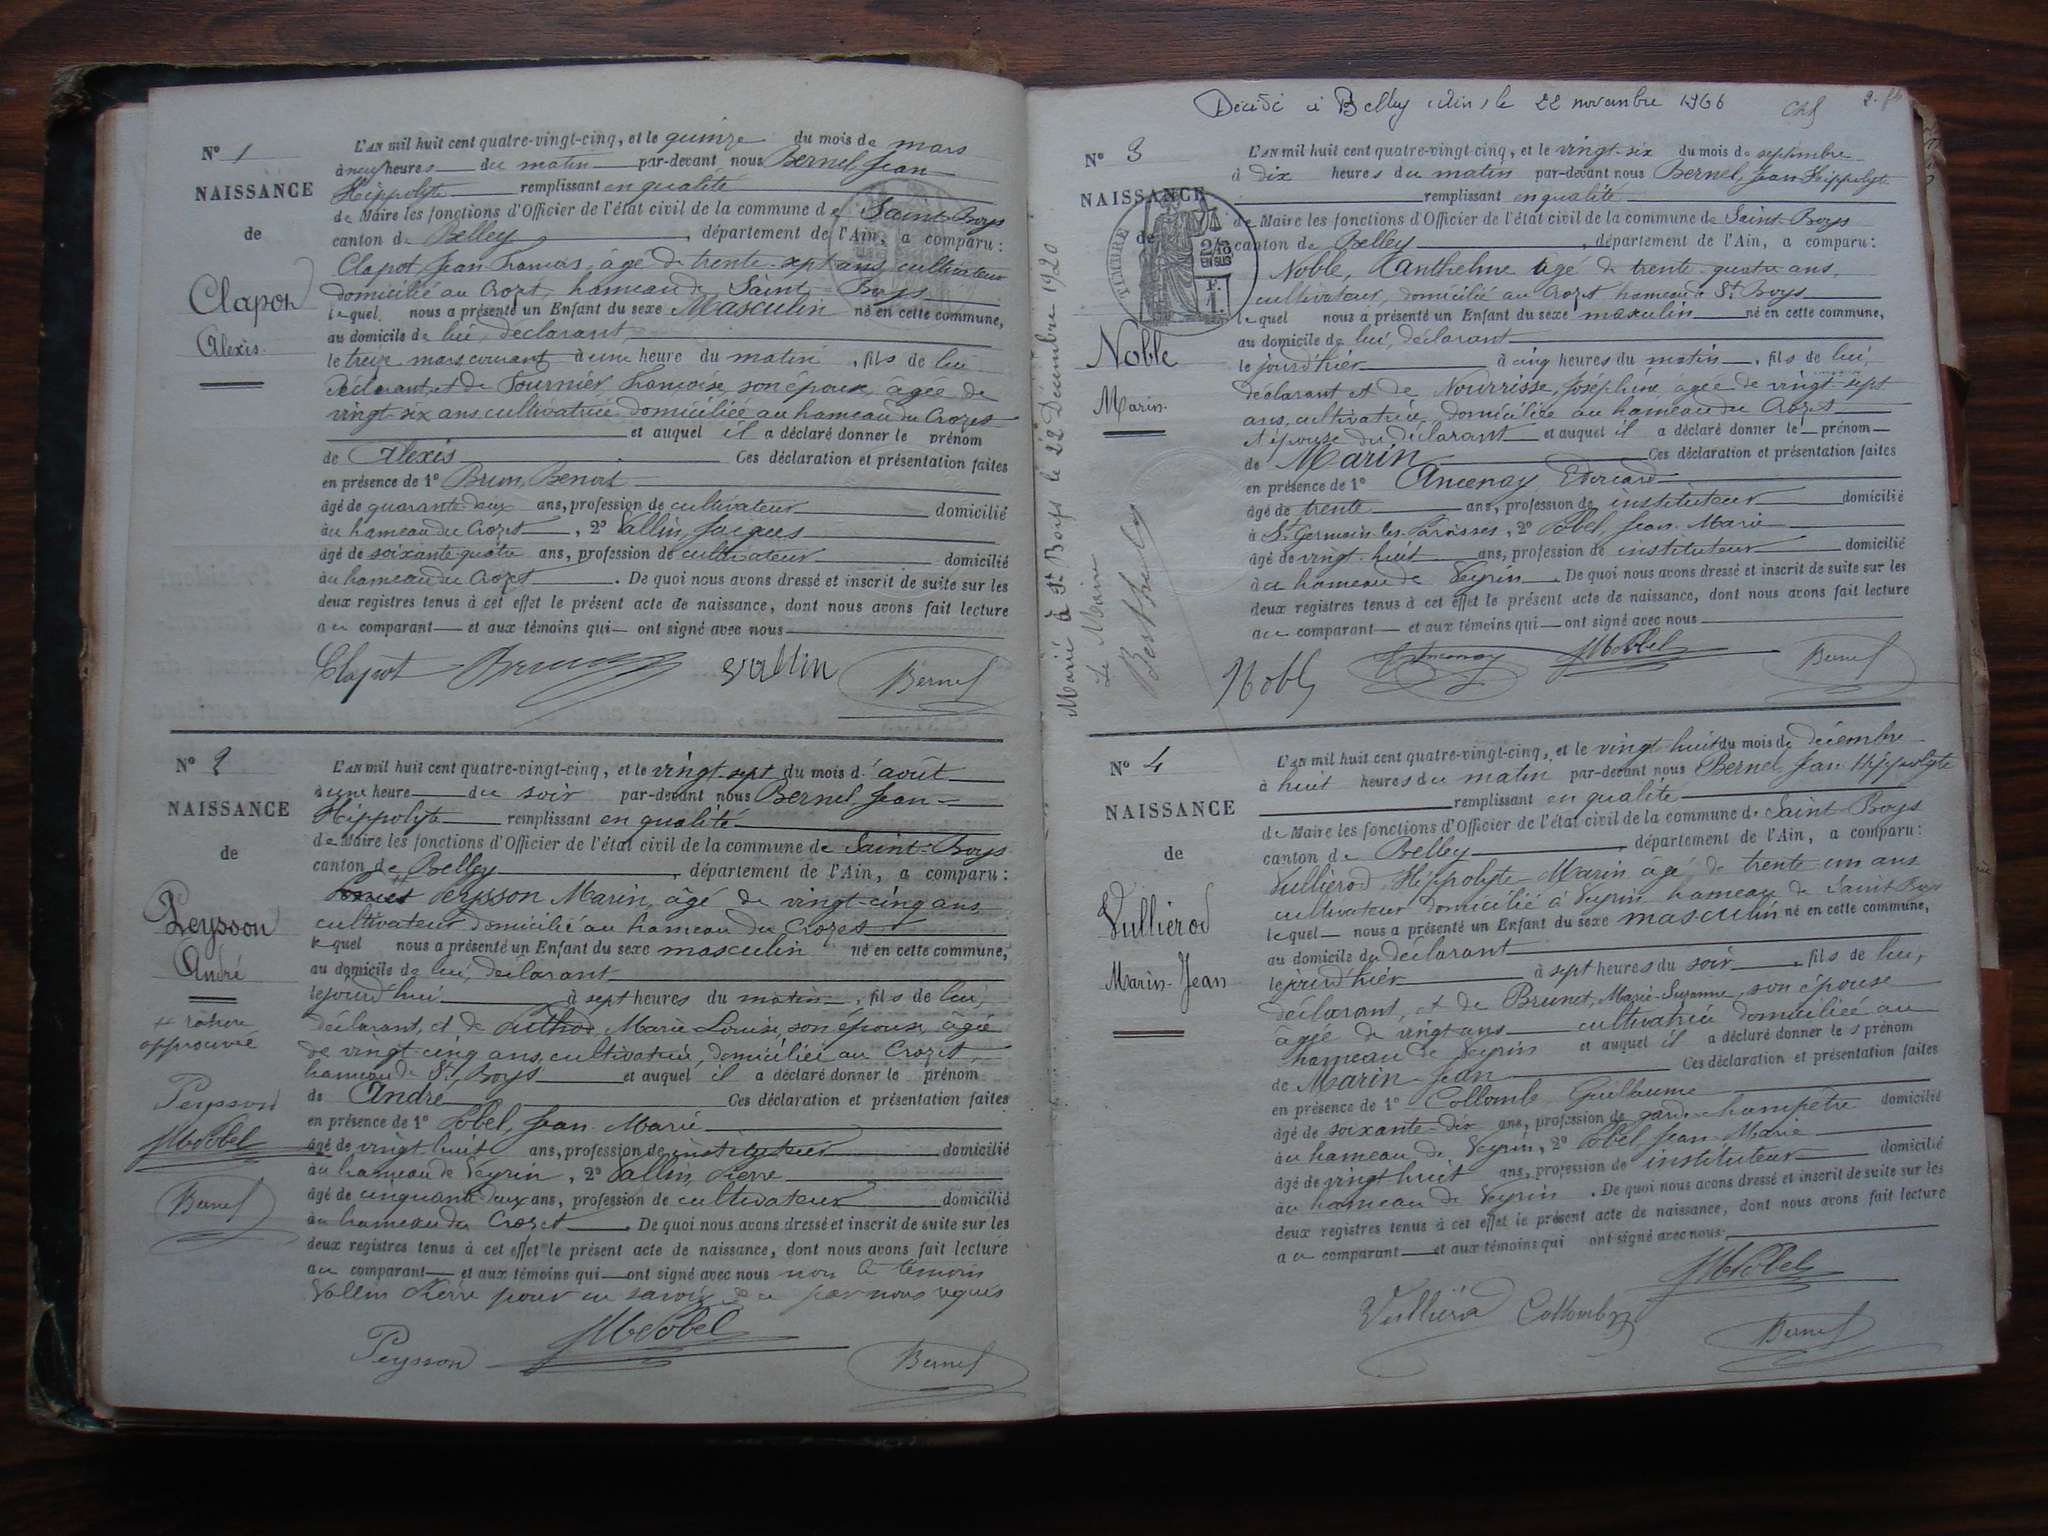 N° 1
NAISSANCE
de
Clapot
Alexis.
L'AN mil huit cent quatre-vingt-cinq, et le quinze du mois de mars
à neuf heures du matin par-devant nous Bernel Jean
Hippolyte remplissant en qualité
de Maire les fonctions d'Officier de l'état civil de la commune de Saint-Boys
canton de Belley, département de l'Ain, a comparu:
Clapot, Jean François, âgé de trente-sept ans, cultivateur
domicilié au Crozet, hameau de Saint-Boys
lequel nous a présenté un Enfant du sexe Masculin né en cette commune,
au domicile de lui, déclarant,
le treize mars courant à une heure du matin, fils de lui
déclarant, et de Fournier Françoise, son épouse, âgée de
vingt six ans cultivatrice domiciliée au hameau du Crozet
et auquel il a déclaré donner le prénom
de Alexis Ces déclaration et présentation faites
en présence de 1° Brun, Benoit
âgé de quarante deux ans, profession de cultivateur domicilié
au hameau du Crozet, 2° Vallin, Jacques
âgé de soixante quatre ans, profession de cultivateur domicilié
au hameau du Crozet. De quoi nous avons dressé et inscrit de suite sur les
deux registres tenus à cet effet le présent acte de naissance, dont nous avons fait lecture
au comparant et aux témoins qui ont signé avec nous
Clapot Brun Vallin Bernel
N° 2
NAISSANCE
de
Peysson
André
+ rature
approuvée
Peysson
JMPobel
Bernel
L'AN mil huit cent quatre-vingt-cinq, et le vingt-sept du mois d'août
à une heure du soir par-devant nous Bernel Jean
Hippolyte remplissant en qualité
de Maire les fonctions d'Officier de l'état civil de la commune de Saint-Boys
canton de Belley, département de l'Ain, a comparu:
Peysson Marin, âgé de vingt-cinq ans
cultivateur domicilié au hameau du Crozet
lequel nous a présenté un Enfant du sexe masculin né en cette commune,
au domicile de lui, déclarant
le jourd'hui à sept heures du matin, fils de lui,
déclarant, et de Marie Louise, son épouse, âgée
de vingt-cinq ans, cultivatrice, domiciliée au Crozet
hameau de St Boys et auquel il a déclaré donner le prénom
de André Ces déclaration et présentation faites
en présence de 1° Pobel, Jean Marie
âgé de vingt huit ans, profession de instituteur domicilié
au hameau de Veyrin, 2° Vallin Pierre
âgé de cinquante deux ans, profession de cultivateur domicilié
au hameau du Crozet. De quoi nous avons dressé et inscrit de suite sur les
deux registres tenus à cet effet le présent acte de naissance, dont nous avons fait lecture
au comparant et aux témoins qui ont signé avec nous non le témoin
Vallin Pierre pour ne savoir de ce par nous requis
Peysson JMPobel Bernel
Décédé à Belley (Ain) le 22 novembre 1966
N° 3
NAISSANCE
de
Noble
Marin.
TIMBRE
2/10
EN SUS
Marié à St Boys le 22 Décembre 1920
Le Maire
L'AN mil huit cent quatre-vingt-cinq, et le vingt-six du mois de septembre
à dix heures du matin par-devant nous Bernel, Jean Hippolyte
remplissant en qualité
de Maire les fonctions d'Officier de l'état civil de la commune de Saint-Boys
canton de Belley, département de l'Ain, a comparu:
Noble, Xanthelme âgé de trente-quatre ans,
cultivateur, domicilié au Crozet hameau de St Boys
lequel nous a présenté un Enfant du sexe masculin né en cette commune,
au domicile de lui, déclarant
le jourd'hier à cinq heures du matin, fils de lui,
déclarant et de Nourrisse, Joséphine, âgée de vingt-sept
ans, cultivatrice, domiciliée au hameau du Crozet
et épouse du déclarant et auquel il a déclaré donner le prénom
de Marin Ces déclaration et présentation faites
en présence de 1° Ancenay Edouard
âgé de trente ans, profession de instituteur domicilié
à St Germain les Paroisses, 2° Pobel, Jean-Marie
âgé de vingt-huit ans, profession de instituteur domicilié
au hameau de Veyrin. De quoi nous avons dressé et inscrit de suite sur les
deux registres tenus à cet effet le présent acte de naissance, dont nous avons fait lecture
au comparant et aux témoins qui ont signé avec nous
Noble Ancenay JMPobel Bernel
N° 4
NAISSANCE
de
Vulliérod
Marin-Jean
L'AN mil huit cent quatre-vingt-cinq, et le vingt-huit du mois de décembre
à huit heures du matin par-devant nous Bernel Jean Hippolyte
remplissant en qualité
de Maire les fonctions d'Officier de l'état civil de la commune de Saint-Boys
canton de Belley, département de l'Ain, a comparu:
Vulliérod Hippolyte-Marin âgé de trente un ans
cultivateur domicilié à Veyrin hameau de Saint Boys
lequel nous a présenté un Enfant du sexe masculin né en cette commune,
au domicile du déclarant
le jourd'hier à sept heures du soir, fils de lui,
déclarant, et de Brunet, Marie-Suzanne, son épouse
âgée de vingt ans cultivatrice domiciliée au
hameau de Veyrin et auquel il a déclaré donner les prénom
de Marin-Jean Ces déclaration et présentation faites
en présence de 1° Collomb Guillaume
âgé de soixante-dix ans, profession de garde-champêtre domicilié
au hameau de Veyrin, 2° Pobel Jean-Marie
âgé de vingt huit ans, profession de instituteur domicilié
au hameau de Veyrin. De quoi nous avons dressé et inscrit de suite sur les
deux registres tenus à cet effet le présent acte de naissance, dont nous avons fait lecture
au comparant et aux témoins qui ont signé avec nous.
JMPobel
Vulliérod Collomb
Bernel